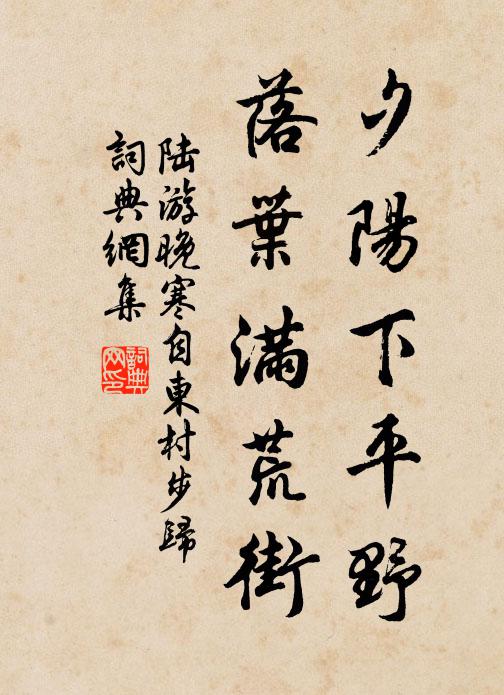 夕陽下平野
落葉滿荒街
陸游晚寒自東村步歸
詞典網集
詞典網印